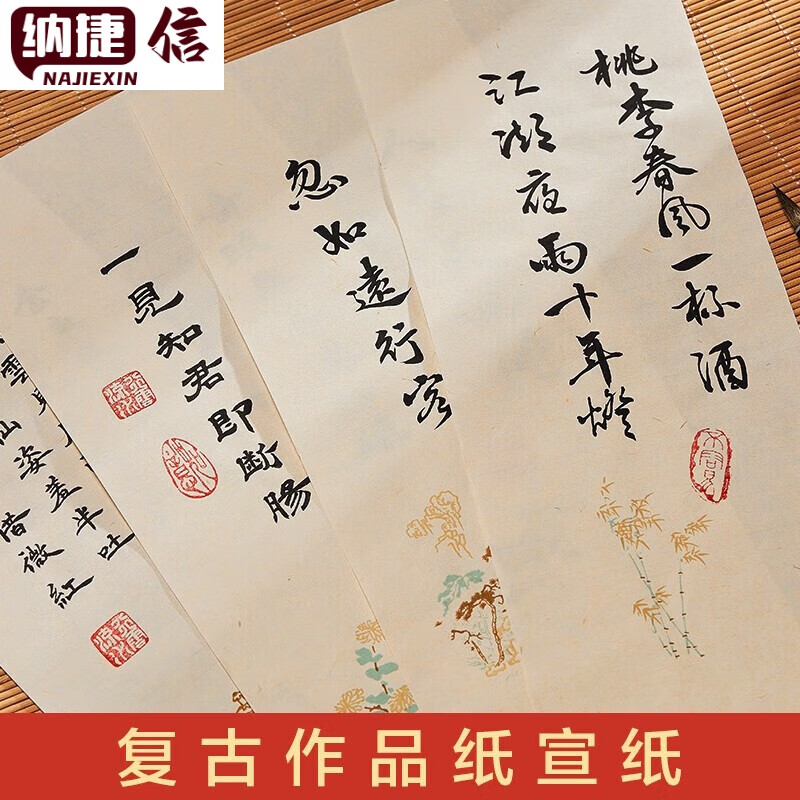 纳捷信
NAJIEXIN
桃李春风一杯酒
江湖夜雨十年燈
忽如遠行客
一見知君即斷腸
雲
仙姿羞半吐
借微紅
复古作品纸宣纸